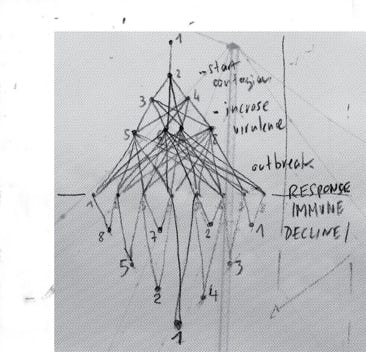 1
2
- start
contagion
3 4
- increse
virulence
5
outbreak
RESPONSE
IMMUNE
DECLINE /
8 7 2 1
5 3
2 4
1